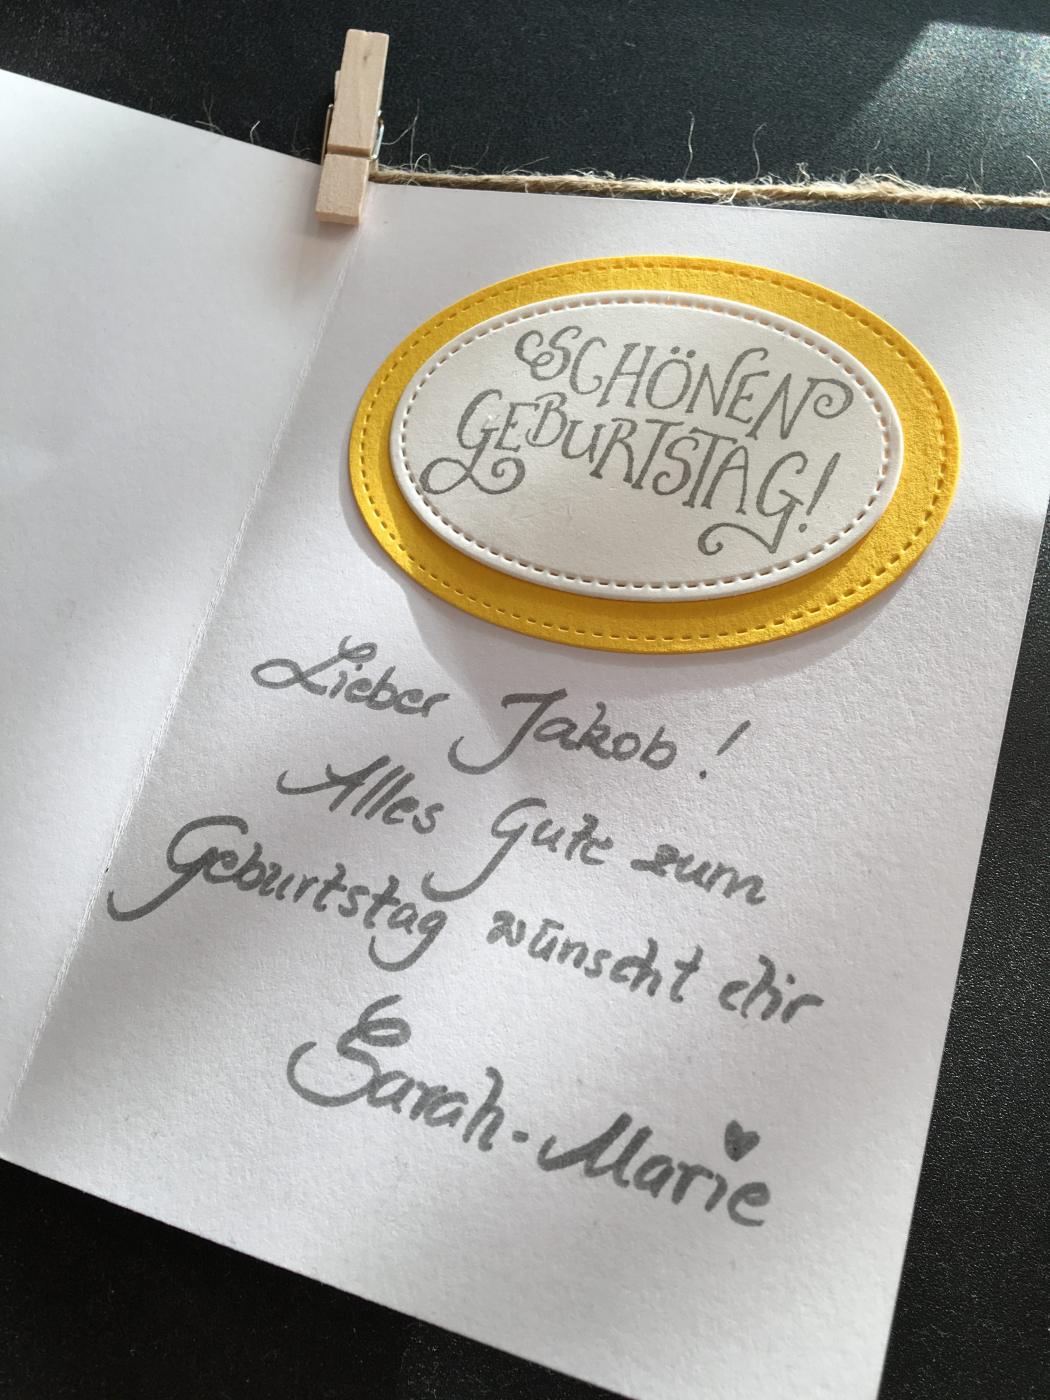 SCHÖNEN
GEBURTSTAG!
Lieber Jakob!
Alles Gute zum
Geburtstag wünscht dir
Sarah-Marie